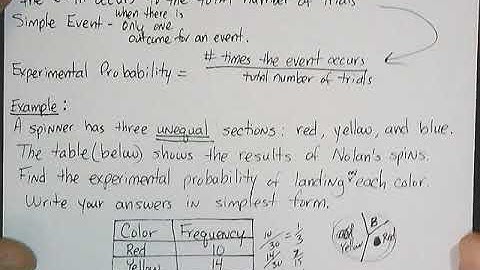 occurs to the total number of trials
Simple Event - when there is only one
outcome for an event.
Experimental Probability = # times the event occurs
total number of trials
Example:
A spinner has three unequal sections: red, yellow, and blue.
The table (below) shows the results of Nolan's spins.
Find the experimental probability of landing on each color.
Write your answers in simplest form.
Color Frequency
Red 10 10/30 = 1/3
Yellow 14 14/30 7/15
B
Yellow Red